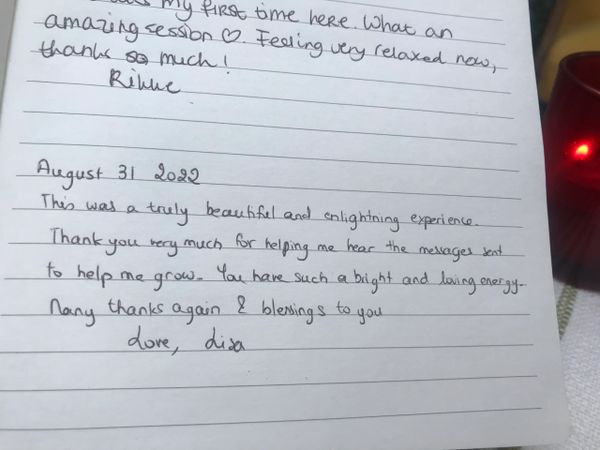 my first time here. What an
amazing session ♡. Feeling very relaxed now,
thanks so much!
Rikke
August 31 2022
This was a truly beautiful and enlightning experience.
Thank you very much for helping me hear the messages sent
to help me grow. You have such a bright and loving energy.
Many thanks again & blessings to you
Love, Lisa